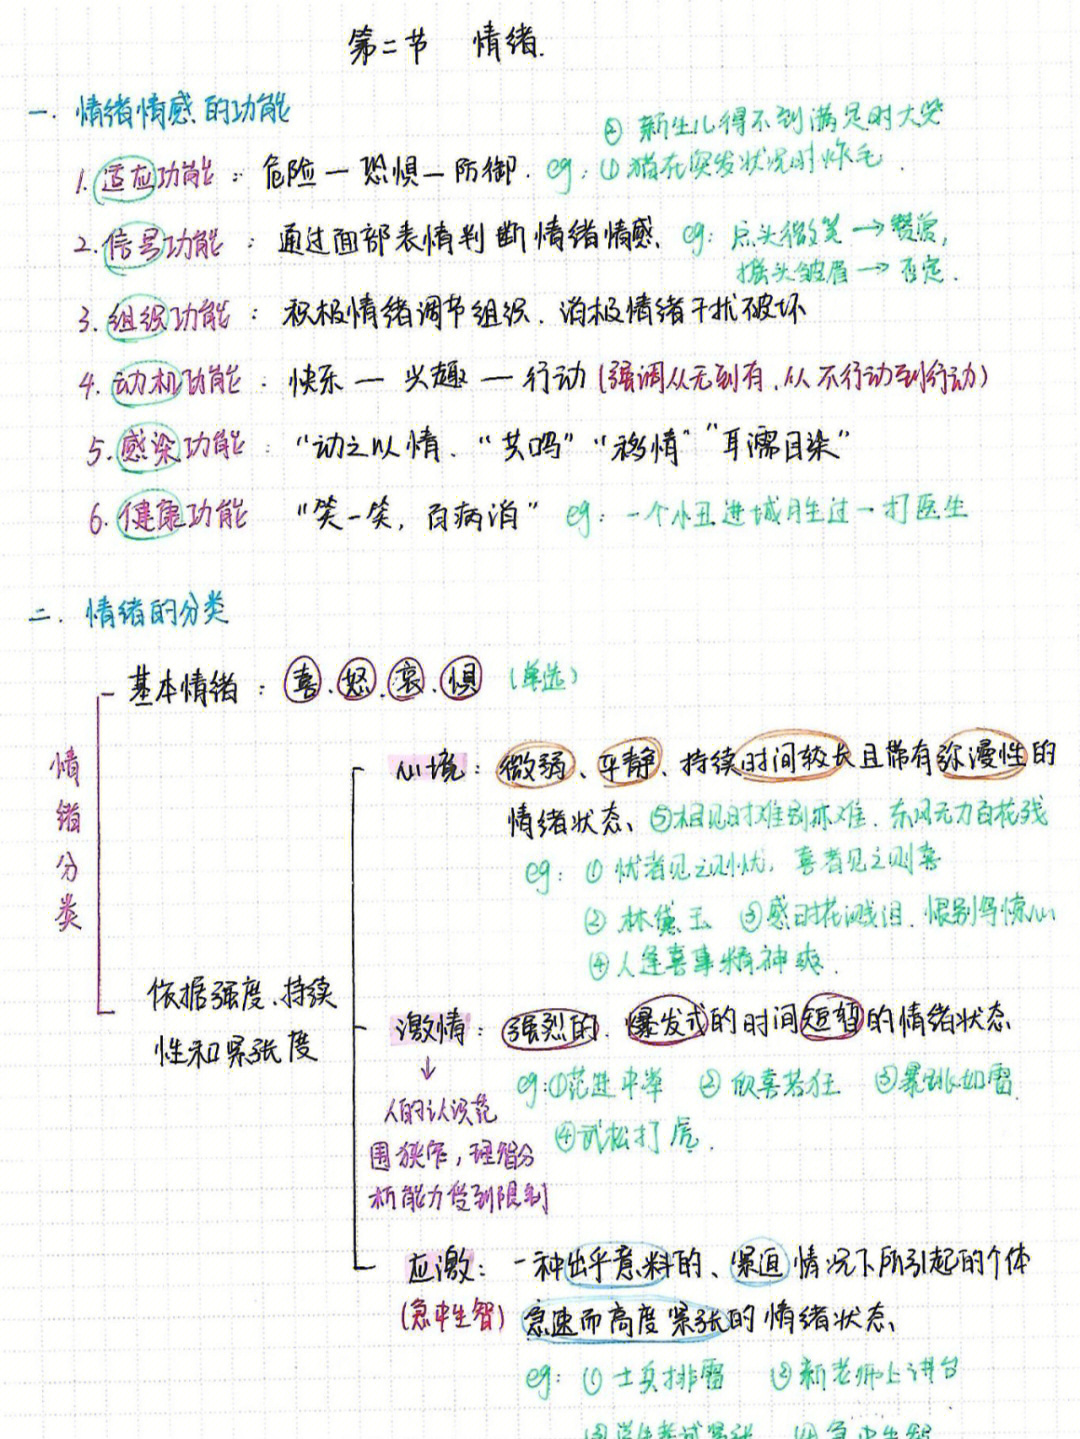 第二节 情绪.
一. 情绪情感的功能
② 新生儿得不到满足时大哭
1. 适应功能: 危险—恐惧—防御. eg: ① 猫在突发状况时炸毛.
2. 信号功能: 通过面部表情判断情绪情感. eg: 点头微笑→赞赏,
摇头皱眉→否定.
3. 组织功能: 积极情绪调节组织. 消极情绪干扰破坏
4. 动机功能: 快乐—兴趣—行动 (强调从无到有, 从不行动到行动)
5. 感染功能: “动之以情. “共鸣” “移情” “耳濡目染”
6. 健康功能 “笑一笑, 百病消” eg: 一个小丑进城胜过一打医生
二. 情绪的分类
基本情绪: 喜. 怒. 哀. 惧 (单选)
情绪分类
心境: 微弱、平静、持续时间较长且带有弥漫性的
情绪状态、⑤相见时难别亦难. 东风无力百花残
eg: ① 忧者见之则忧, 喜者见之则喜
② 林黛玉 ③感时花溅泪. 恨别鸟惊心
④人逢喜事精神爽.
依据强度、持续
性和紧张度
激情: 强烈的. 爆发式的时间短暂的情绪状态、
↓ eg: ①范进中举 ② 欣喜若狂 ③暴跳如雷.
④武松打虎.
人的认识范
围狭窄, 理智分
析能力受到限制
应激: 一种出乎意料的、紧迫情况下所引起的个体
(急中生智) 急速而高度紧张的情绪状态、
eg: ① 士兵排雷 ② 新老师上讲台
③学生考试紧张 ④ 急中生智